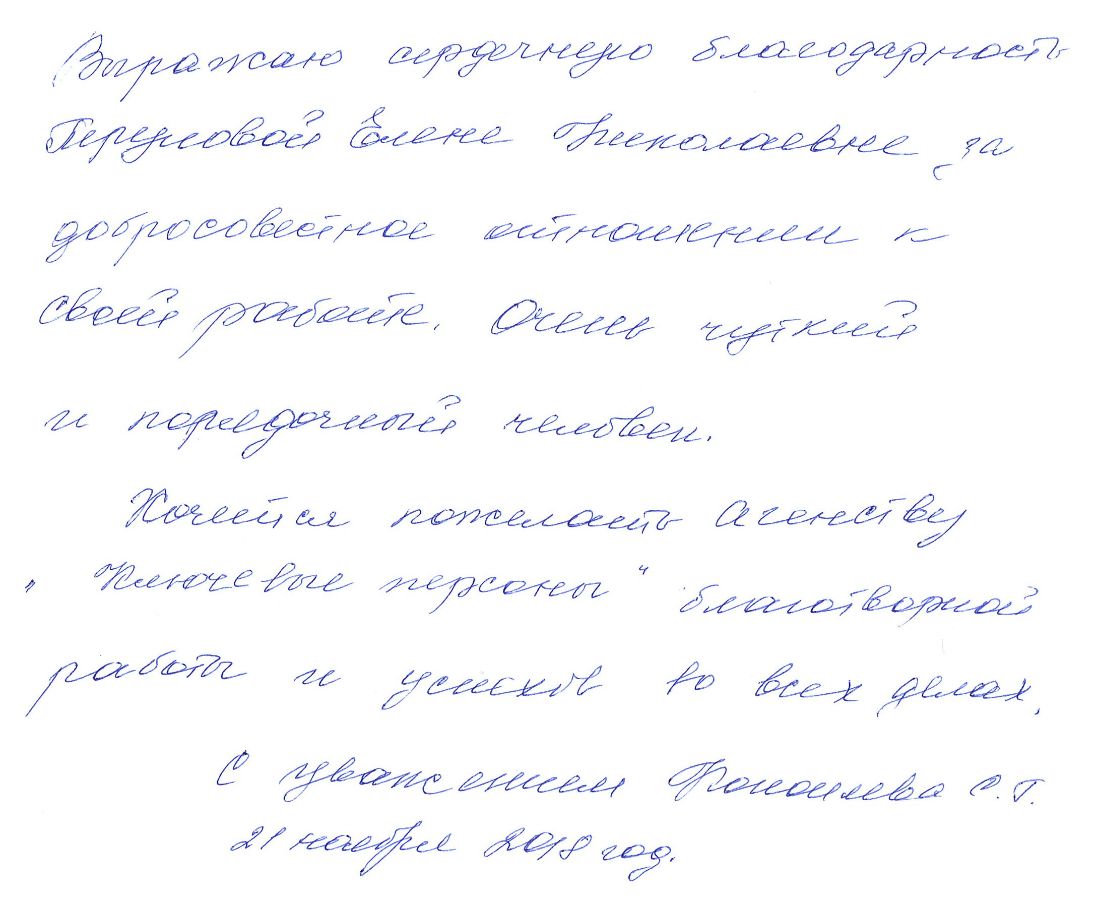 Выражаю сердечную благодарность
Перуновой Елене Николаевне за
добросовестное отношении к
своей работе. Очень чуткий
и порядочный человек.
Хочется пожелать Агенству
"Ключевые персоны" благотворной
работы и успехов во всех делах.
С уважением С.Г.
21 ноября 2018 год.